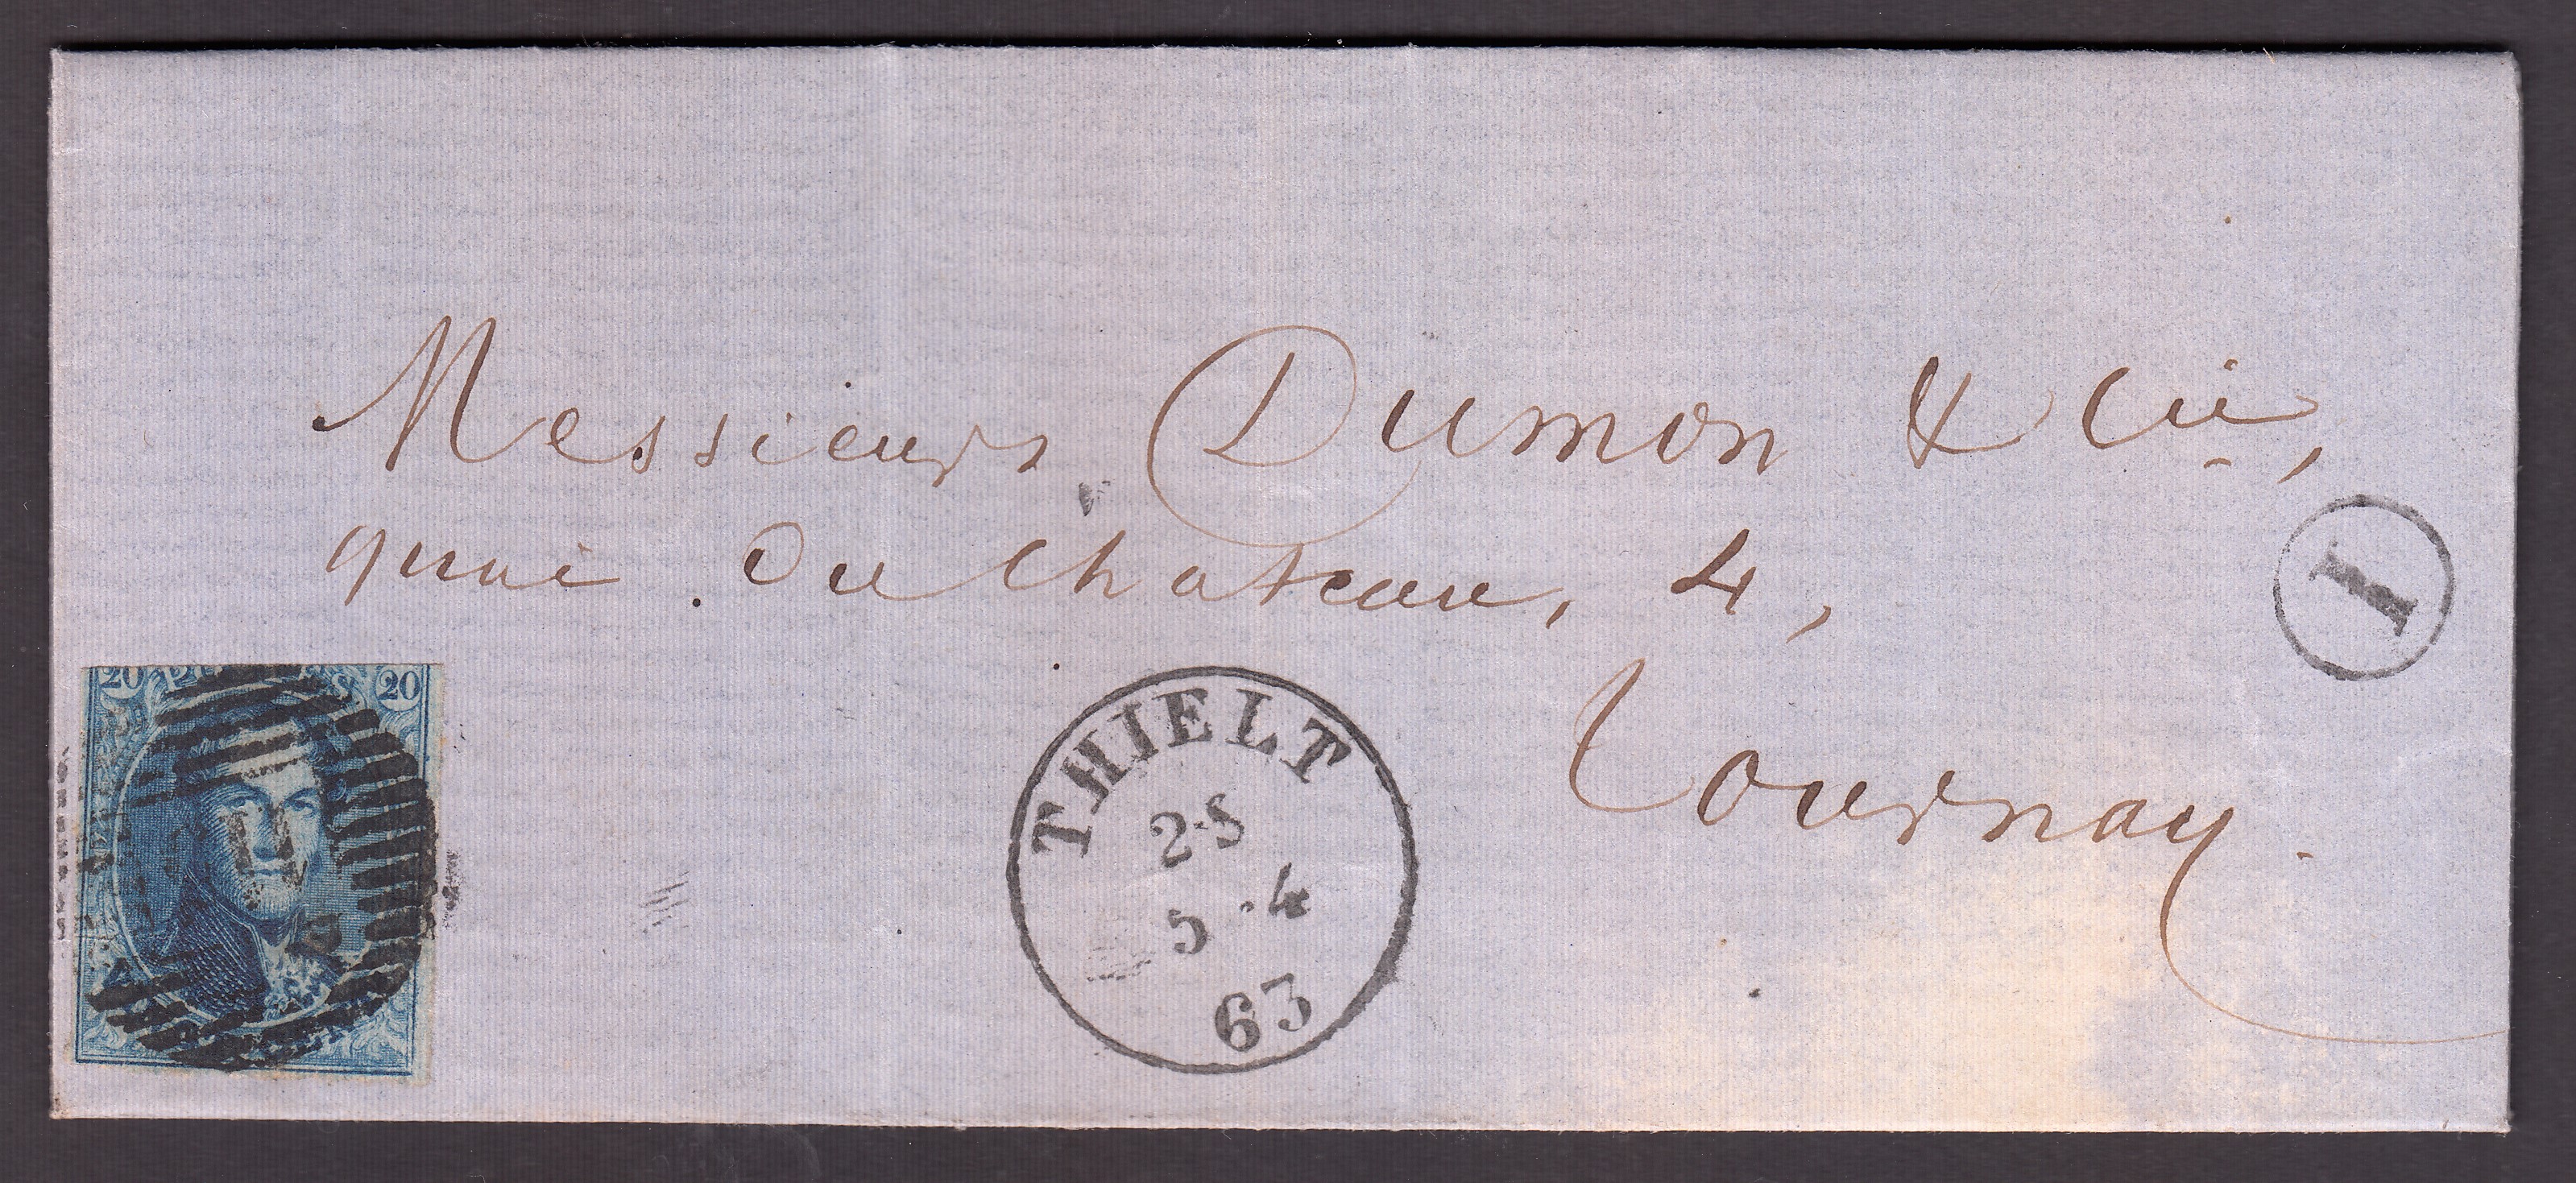 Messieurs Dumon & Cie,
quai du chateau, 4,
Tournay.
I
20 20
THIELT
2-S
5 .4
63